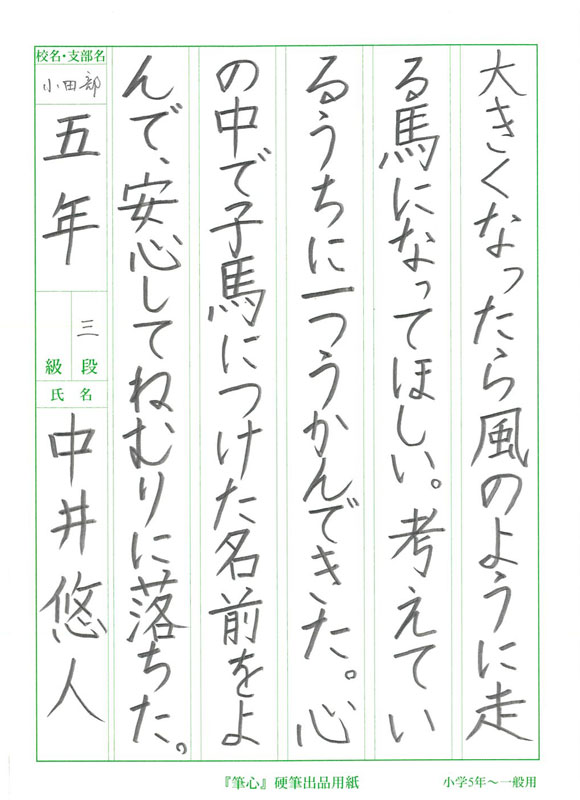 大きくなったら風のように走
る馬になってほしい。考えてい
るうちに一つうかんできた。心
の中で子馬につけた名前をよ
んで、安心してねむりに落ちた。
校名・支部名
小田部
五年
三
級 段
氏名
中井悠人
『筆心』硬筆出品用紙
小学5年〜一般用